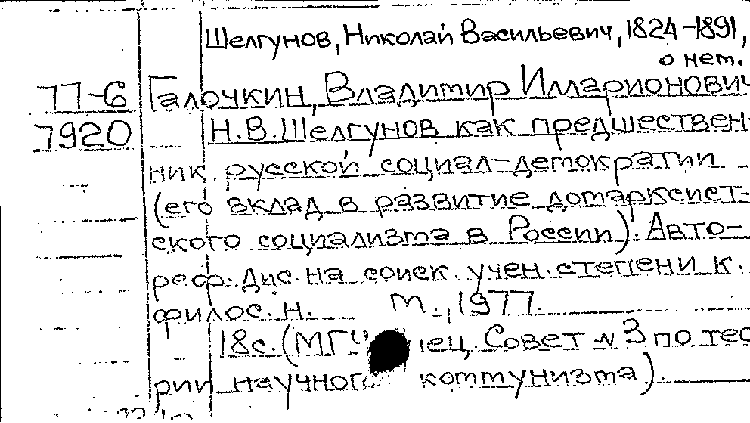 Шелгунов, Николай Васильевич, 1824-1891,
о нем.
77-6 Галочкин, Владимир Илларионович
7920 Н.В.Шелгунов как предшествен-
ник русской социал-демократии
(его вклад в развитие домарксист-
ского социализма в России). Авто-
реф. дис. на соиск. учен. степени к.
филос. н. М., 1977.
18с. (МГУ Совет № 3 по тео
рии научного коммунизма).